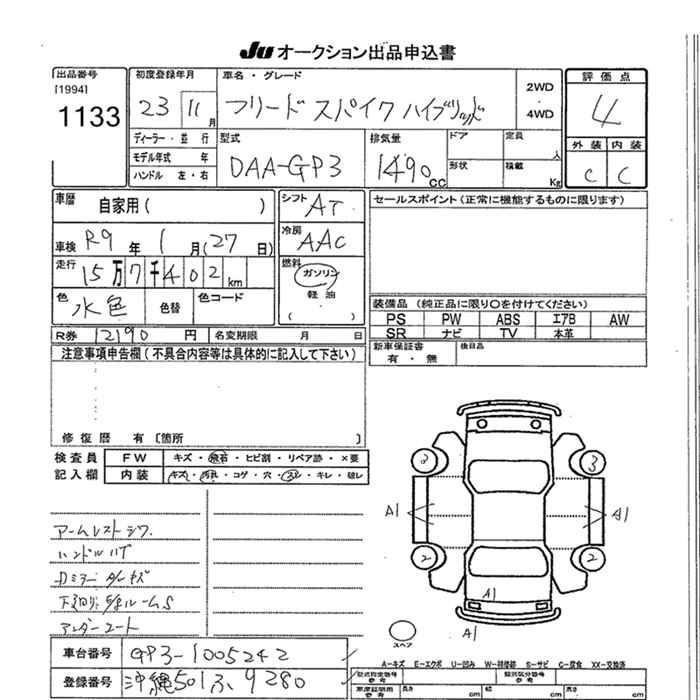 JU オークション出品申込書
出品番号 初度登録年月 車名・グレード 評価点
[1994]
1133
23 11月 フリードスパイクハイブリッド 2WD 4WD 4
ディーラー・並行
モデル年式 年
ハンドル 左・右
型式 DAA-GP3
排気量 1490cc
ドア 定員 人
形状 積載 Kg
外装 内装
C C
車歴 自家用( )
シフト AT
セールスポイント(正常に機能するものに限ります)
車検 R9年 1月(27日)
冷房 AAC
走行 15万7千402km
燃料 ガソリン
軽油
( )
色 水色 色替 色コード
装備品 (純正品に限り○を付けてください)
PS PW ABS エアB AW
SR ナビ TV 本革
R券 12190円 名変期限 月 日
新車保証書 後日品
有・無
注意事項申告欄(不具合内容等は具体的に記入して下さい)
修復歴 有 〔箇所 〕
検査員 FW キズ・飛石・ヒビ割・リペア跡・×要
記入欄 内装 キズ・汚れ・コゲ・穴・スレ・キレ・破レ
アームレストシワ
ハンドルハゲ
アンダーコート
2 3
A1 A1
2 2
A1
A1
スペア
A-キズ E-エクボ U-凹み W-補修跡 S-サビ C-腐食 XX-交換済
車台番号 GP3-1005242
登録番号 沖縄501ふ9280
型式指定番号 参考 類別区分番号 参考
車庫証明用 参考 長さ cm cm cm